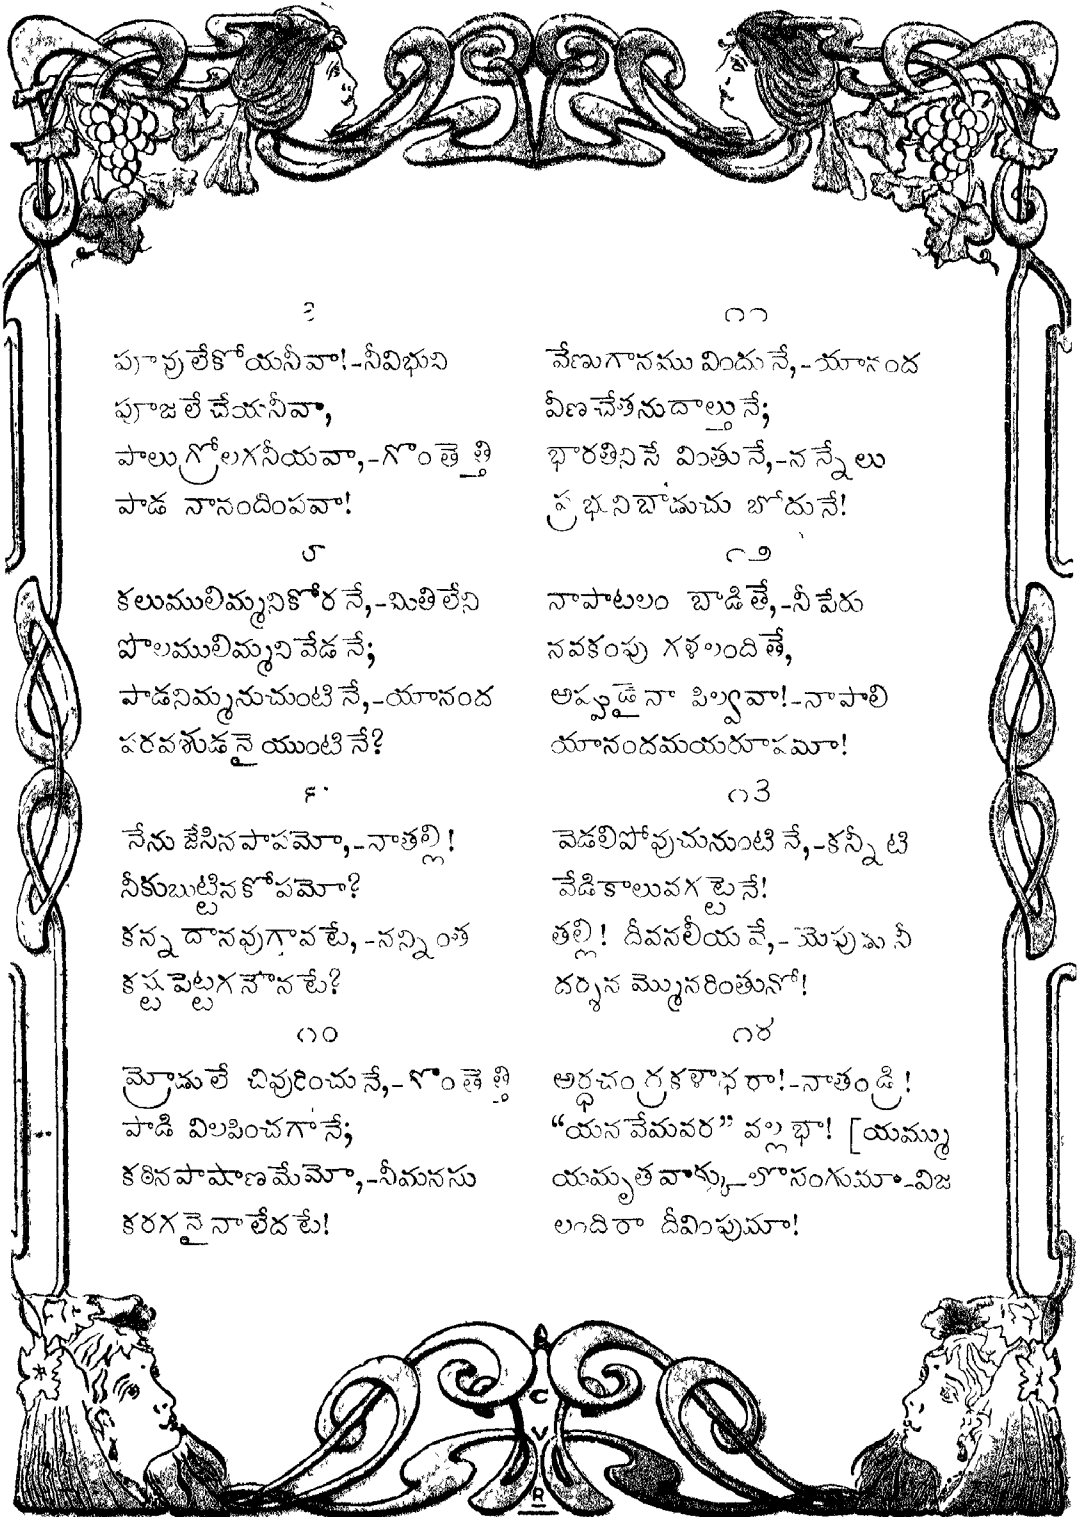 పూవులేకోయనీవా!-నీవిభుని
పూజలే చేయనీవా,
పాలుగ్రోలగనీయవా,-గొంతెత్తి
పాడ నానందింపవా!
౮
కలుములిమ్మనికోరనే,-మితిలేని
పొలములిమ్మని వేడనే;
పాడనిమ్మనుచుంటినే,-యానంద
పరవశుడనై యుంటినే?
౯
నేను జేసిన పాపమో,-నాతల్లి!
నీకుబుట్టిన కోపమో?
కన్న దానవుగావటే,-నన్నింత
కష్టపెట్టగనౌనటే?
౧౦
మ్రోడులే చివురించునే,-గొంతెత్తి
పాడి విలపించగానే;
కఠిన పాషాణమేమో,-నీమనసు
కరగనైనా లేదటే!
౧౧
వేణుగానము విందునే,-యానంద
వీణచేతనుదాల్తునే;
భారతినినే వింతునే,-నన్నేలు
ప్రభునిబాడుచు బోదునే!
౧౨
నాపాటలం బాడితే,-నీపేరు
నవకంపు గళలందితే,
అప్పుడైనా పిల్వవా!-నాపాలి
యానందమయరూపమా!
౧౩
వెడలిపోవుచునుంటినే,-కన్నీటి
వేడికాలువగట్టెనే!
తల్లి! దీవనలీయవే,-యెపుడు నీ
దర్శన మ్మొనరింతునో!
౧౪
అర్ధచంద్రకళాధరా!-నాతండ్రి!
“యనవేమవర” వల్లభా! [యమ్ము
యమృతవాక్కు-లొసంగుమా-విజ
లందిరా దీవింపుమా!
A
C
V
R